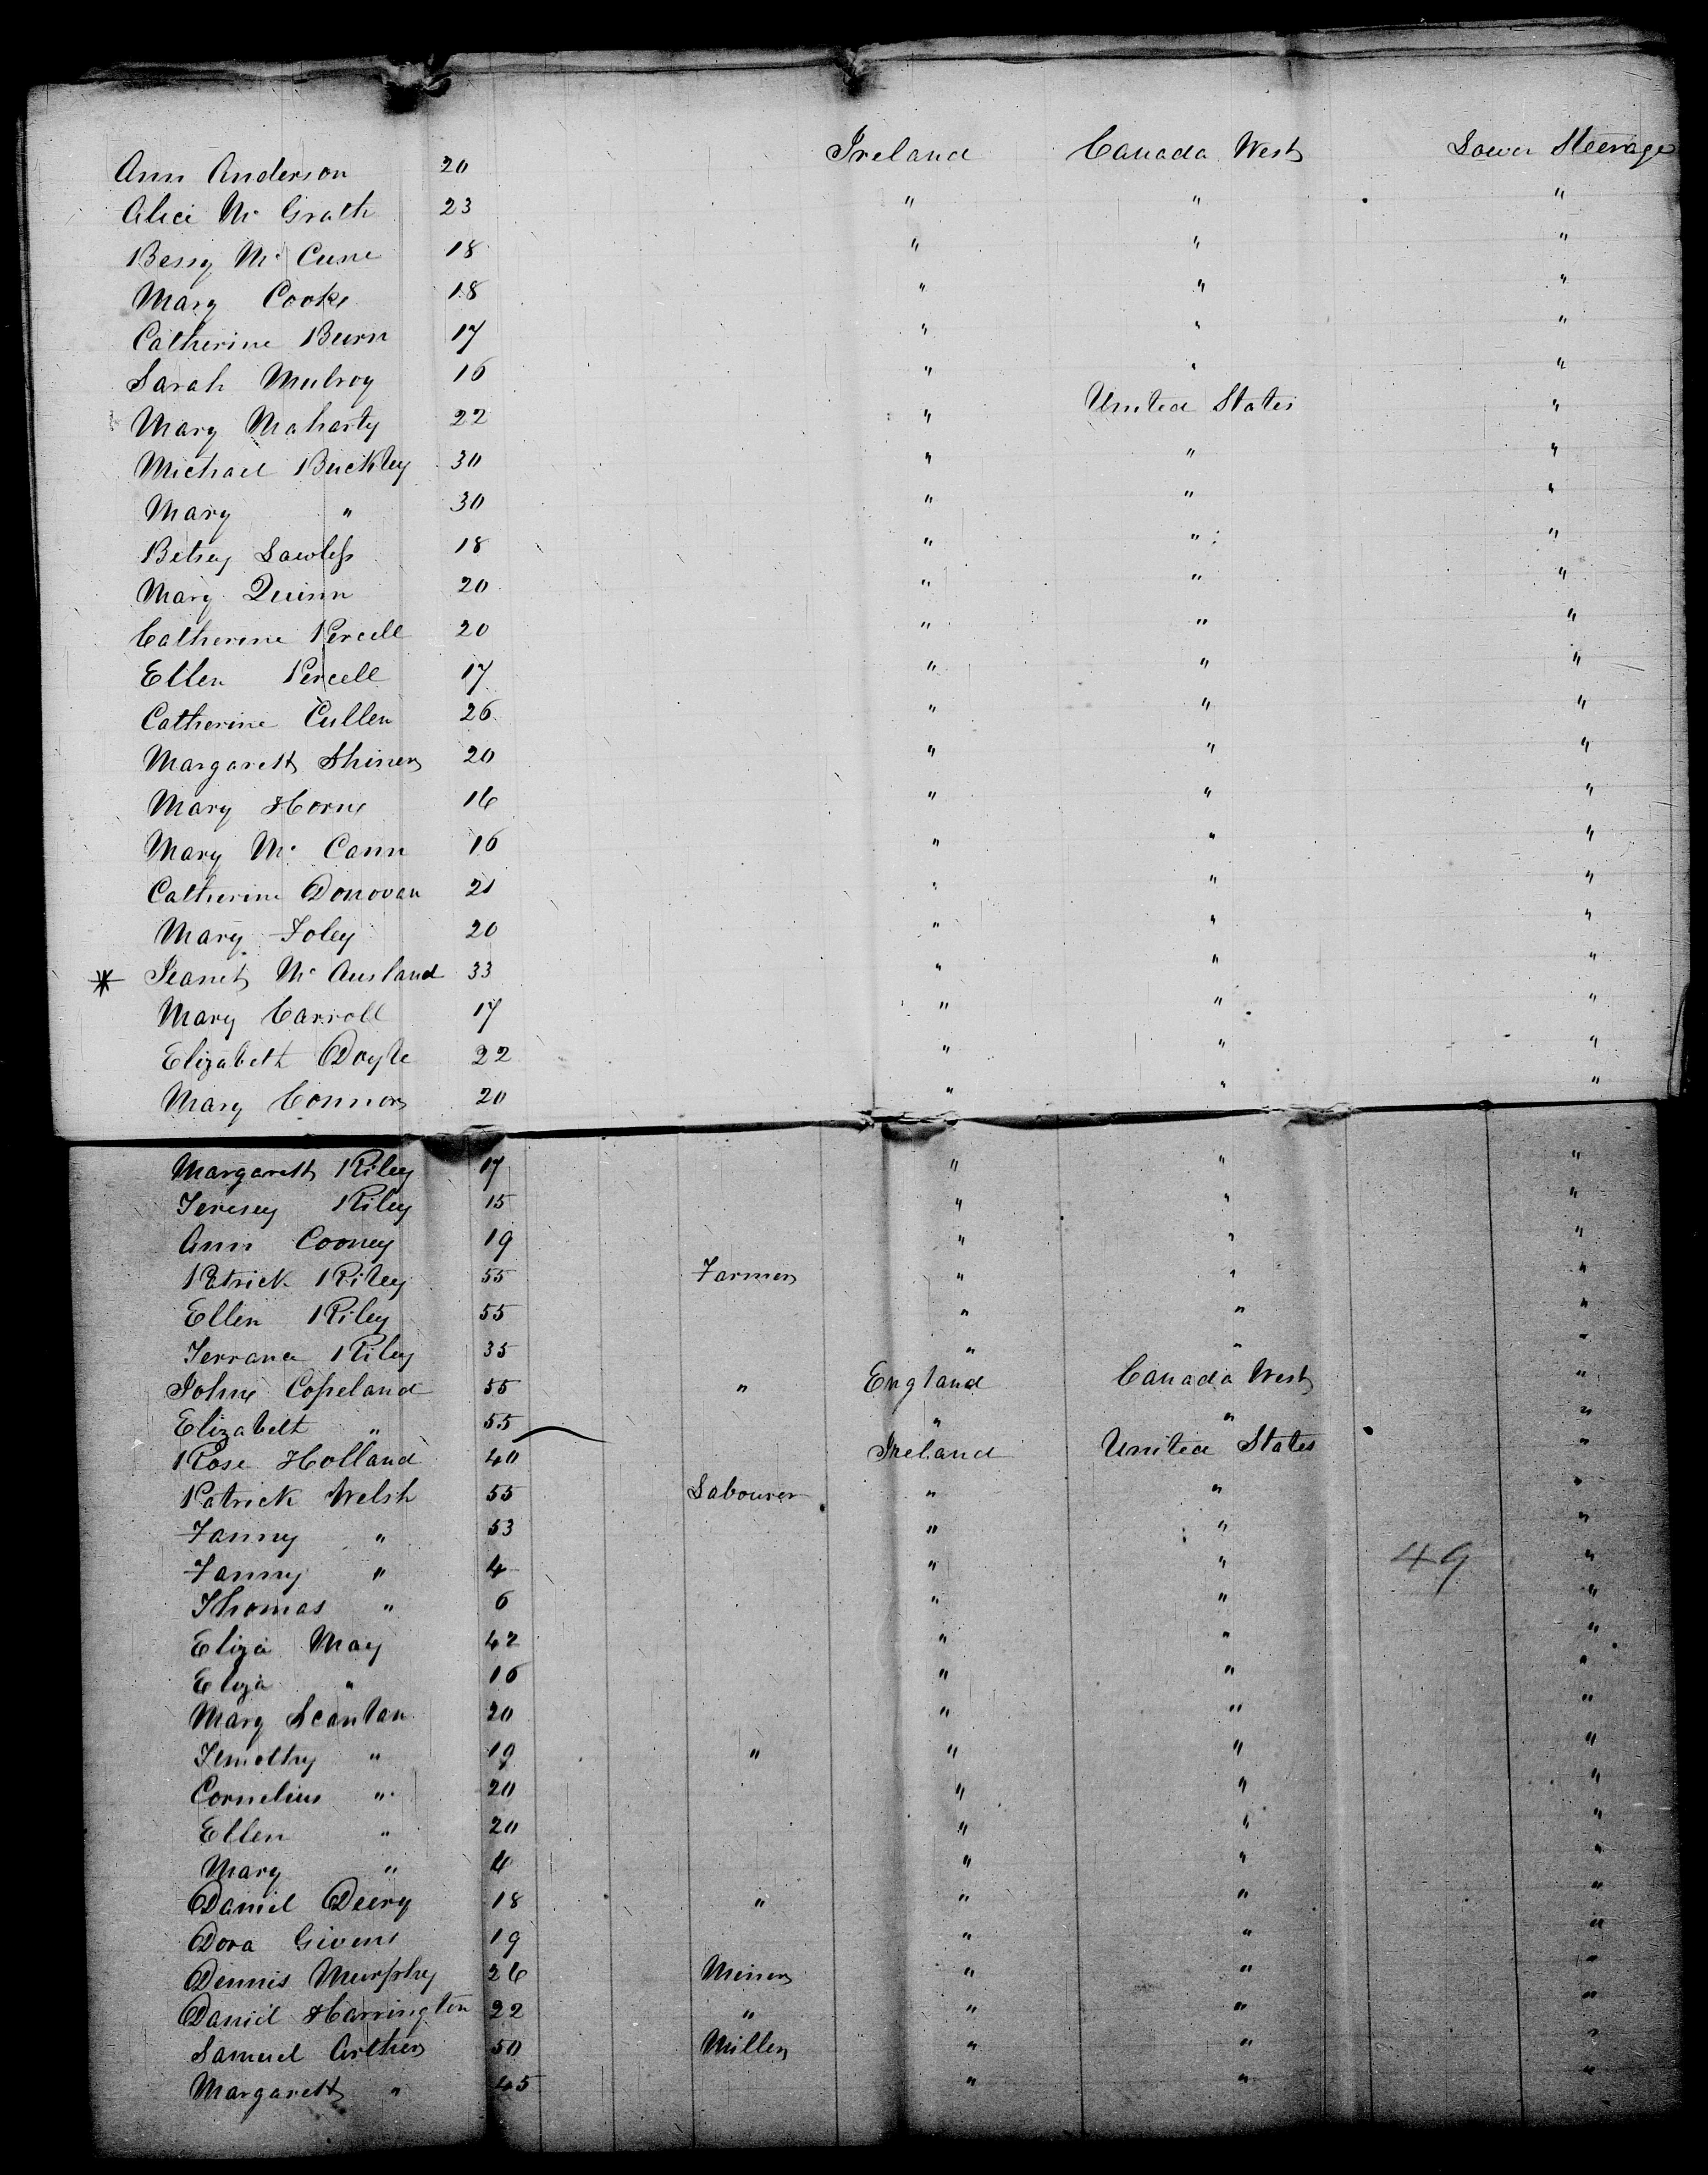 Ann Anderson 20 Ireland Canada West Lower Steerage
Alice Mc Grath 23 " " "
Bessy Mc Cune 18 " " "
Mary Cooke 18 " " "
Catherine Burn 17 " " "
Sarah Mulroy 16 " " "
Mary Maharty 22 " United States "
Michael Buckley 30 " " "
Mary " 30 " " "
Betsey Lawless 18 " " "
Mary Quinn 20 " " "
Catherine Percell 20 " " "
Ellen Percell 17 " " "
Catherine Cullen 26 " " "
Margarett Shiner 20 " " "
Mary Horne 16 " " "
Mary Mc Cann 16 " " "
Catherine Donovan 21 " " "
Mary Foley 20 " " "
* Jeanet Mc Ausland 33 " " "
Mary Carroll 17 " " "
Elizabeth Doyle 22 " " "
Mary Connor 20 " " "
Margarett Riley 17 " " "
Teresey Riley 15 " " "
Ann Cooney 19 " " "
Patrick Riley 55 Farmer " " "
Ellen Riley 55 " " "
Terrance Riley 35 " " "
John Copeland 55 " England Canada West "
Elizabeth " 55 " " "
Rose Holland 40 Ireland United States "
Patrick Welsh 55 Labourer " " "
Fanny " 53 " " "
Fanny " 4 " " 49 "
Thomas " 6 " " "
Eliza May 42 " " "
Eliza " 16 " " "
Mary Scanlan 20 " " "
Timothy " 19 " " " "
Cornelius " 20 " " "
Ellen " 20 " " "
Mary " 4 " " "
Daniel Deery 18 " " " "
Dora Givens 19 " " "
Dennis Murphy 26 Miner " " "
Daniel Harrington 22 " " " "
Samuel Arther 50 Miller " " "
Margarett " 45 " " "